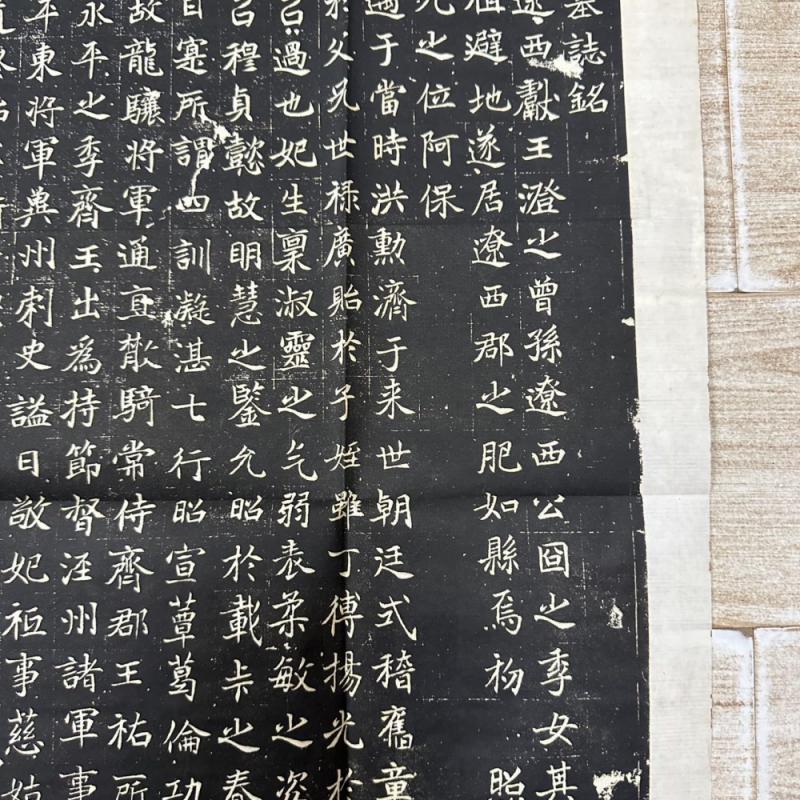 墓誌銘
遼西獻王澄之曾孫遼西公囧之季女其
祖避地遂居遼西郡之肥如縣焉初 照
之位阿保
過于當時洪勳濟于来世朝廷式稽舊章
於父兄世祿廣貽於子姪雖丁傅揚光於
過也妃生稟淑靈之气弱表柔敏之姿
召穆貞懿故明慧之鑒允昭於載卡之春
日寔所謂四訓凝湛七行昭宣蕈葛倫功
故龍驤將軍通直散騎常侍齊郡王祐所
永平之季齊王出為持節督涇州諸軍事
平東將軍兾州刺史謚曰敬妃衹事慈姑